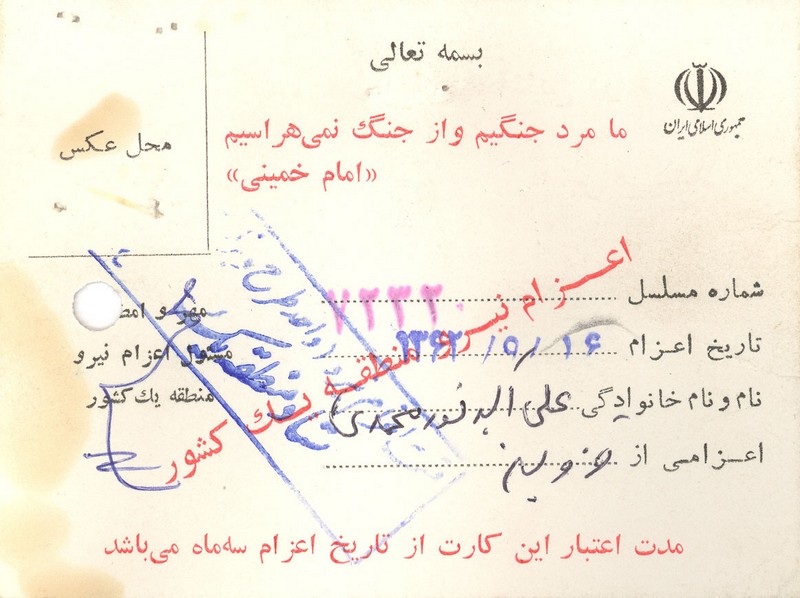 بسمه تعالی
جمهوری اسلامی ایران
ما مرد جنگیم و از جنگ نمی‌هراسیم
«امام خمینی»
محل عکس
اعزام نیرو منطقه یک کشور
شماره مسلسل ۷۲۳۲۰
تاریخ اعزام ۱۳۶۲/۵/۱۶
نام و نام خانوادگی علی
اعزامی از قزوین
مهر و امضا
مسئول اعزام نیرو
منطقه یک کشور
مدت اعتبار این کارت از تاریخ اعزام سه‌ماه می‌باشد